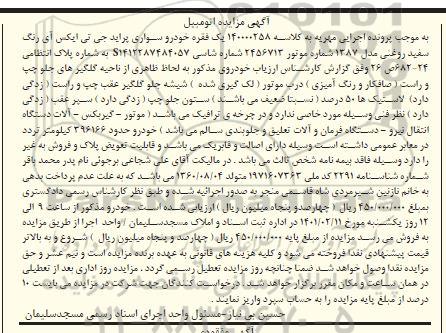 آگهی مزایده اتومبیل
به موجب پرونده اجرایی مهریه به کلاسه ۱۴۰۰۰۰۲۵۸ یک فقره خودرو سواری پراید جی تی ایکس آی رنگ
سفید روغنی مدل ۱۳۸۷ شماره موتور ۲۴۵۶۷۱۳ شماره شاسی S۱۴۱۲۲۸۷۴۸۴۰۵۷ به شماره پلاک انتظامی
۲۴-۶۸۲ص۲۶ وفق گزارش کارشناس ارزیاب خودروی مذکور به لحاظ ظاهری از ناحیه گلگیر های جلو چپ
و راست ( صافکار و رنگ آمیزی ) درب موتور ( لک گیری شده ) شیشه جلو گلگیر عقب چپ و راست ( زدگی
دارد) لاستیک ها ۵۰ درصد ( نسبتا ضعیف می باشند) ستون جلو چپ ( زدگی دارد ) سپر عقب ( زدگی
دارد ) نظر فنی وسیله مورد خاصی ندارد و در چرخه ی ترافیک می باشد ( موتور - گیربکس - آلات دستگاه
انتقال نیرو - دستگاه فرمان و آلات تعلیق و جلوبندی سالم می باشد ) خودرو حدود ۳۹۶۱۶۶ کیلومتر تردد
در معابر عمومی داشته است وسیله دارای اصالت و فابریک می باشد و قابلیت تعویض پلاک و فروش به غیر
را دارد وسیله فاقد بیمه نامه شخص ثالث می باشد . در مالیکت آقای علی شجاعی برجوئی نام پدر محمد باقر
شماره شناسنامه ۲۲۹۱ کد ملی ۱۹۷۱۶۰۷۳۶۳ متولد ۱۳۶۰/۰۸/۰۴ می باشد که به علت عدم پرداخت بدهی
به خانم نازنین شیرمردی شاه قاسمی منجر به صدور اجرائیه شده و طبق نظر کارشناس رسمی دادگستری
بمبلغ ۴۵۰/۰۰۰/۰۰۰ ریال ( چهارصدو پنجاه میلیون ریال ) ارزیابی شده است. خودرو مذکور از ساعت ۹ الی
۱۲ روز یکشنبه مورخ ۱۴۰۱/۰۲/۱۱ در اداره ثبت اسناد و املاک مسجدسلیمان /واحد اجرا از طریق مزایده
به فروش می رسد مزایده از مبلغ پایه ۴۵۰/۰۰۰/۰۰۰ ریال ( چهارصد و پنجاه میلیون ریال ) شروع و به بالاتر
قیمت پیشنهادی نقدا فروخته می شود و کلیه هزینه های قانونی به عهده برنده مزایده است و نیم عشر و حق
مزایده نقدا وصول خواهد شد ضمنا چنانچه روز مزایده تعطیل رسمی گردد . مزایده روز اداری بعد از تعطیلی
در همان ساعت و مکان مقرر برگزار خواهد شد. درخواست کنندگان جهت شرکت در مزایده می بایست ۱۰
درصد از مبلغ پایه مزایده را به حساب سپرد واریز نمایند .
حسین بی نیاز-مسئول واحد اجرای اسناد رسمی مسجدسلیمان